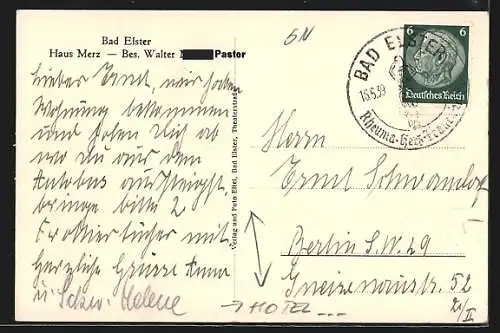 Bad Elster
Haus Merz — Bes. Walter Pastor
Lieber Ernst, wir haben
Wohnung bekommen
und holen Dich ab
wo du aus dem
Autobus aussteigst.
bringe bitte 2
Frottiertücher mit
Herzliche Grüsse Anna
u. Helene
Verlag und Foto Eitel, Bad Elster, Theaterstraße
BAD ELSTER
15.5.39
Rheuma-Herz-Frauen
6 6
Deutsches Reich
Herrn
Ernst
Berlin S.W. 29
Gneisenaustr. 52
→ HOTEL ...